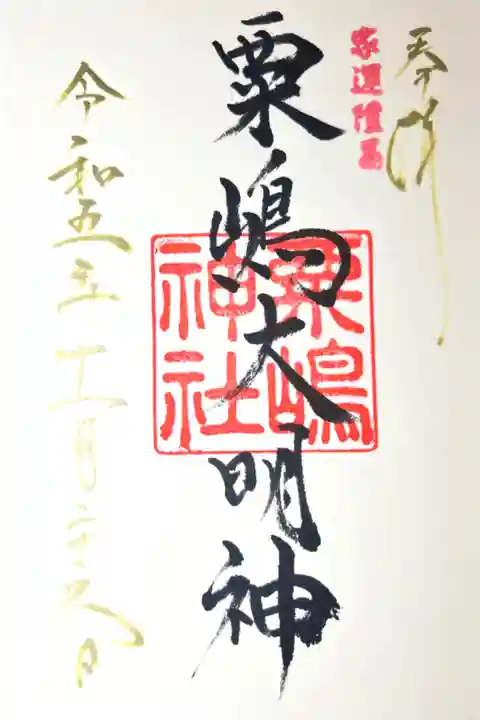 奉拝
家運隆昌
粟嶋大明神
粟嶋神社
令和五年十一月二十九日